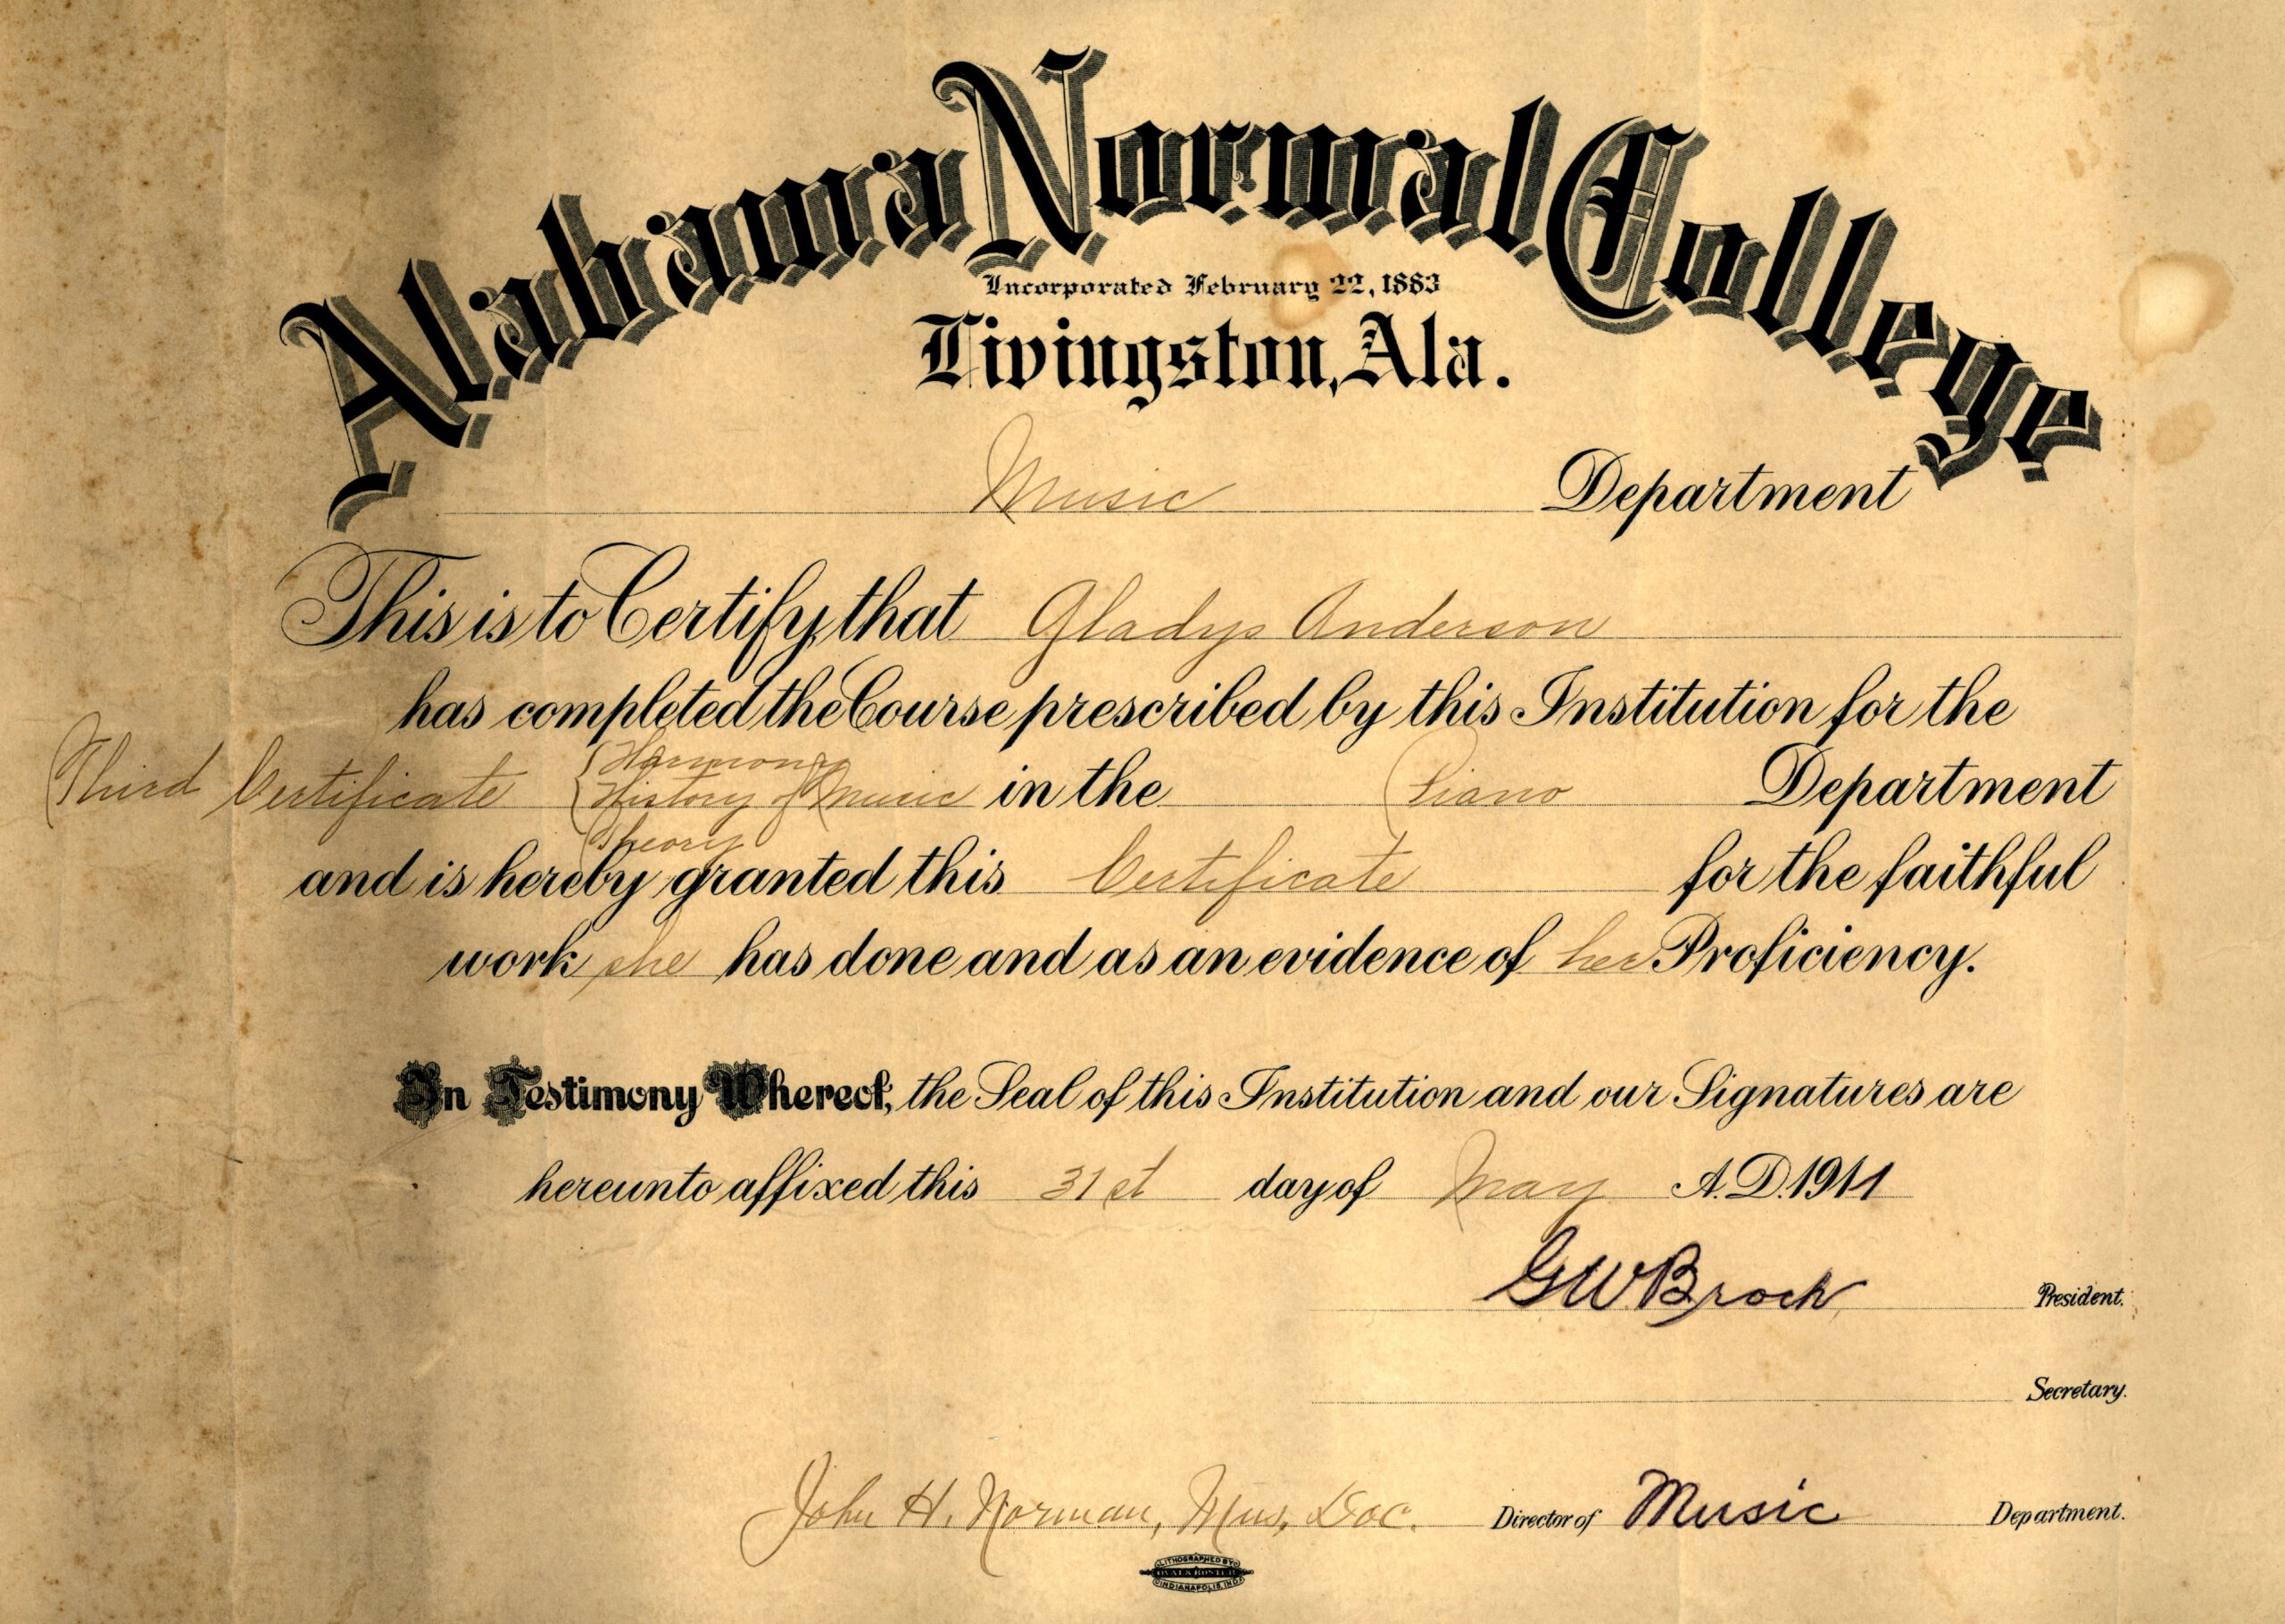 Alabama Normal College
Incorporated February 22, 1883
Livingston, Ala.
Music Department
This is to Certify, that Gladys Anderson
has completed the Course prescribed by this Institution for the
Harmony
Third Certificate { History of Music in the Piano Department
Theory
and is hereby granted this Certificate for the faithful
work she has done and as an evidence of her Proficiency.
In Testimony Whereof, the Seal of this Institution and our Signatures are
hereunto affixed this 31st day of May A.D. 1911
G W Brock President.
Secretary.
John H. Norman, Mus. Doc. Director of Music Department.
LITHOGRAPHED BY
OVAL & KOSTER
INDIANAPOLIS, IND.